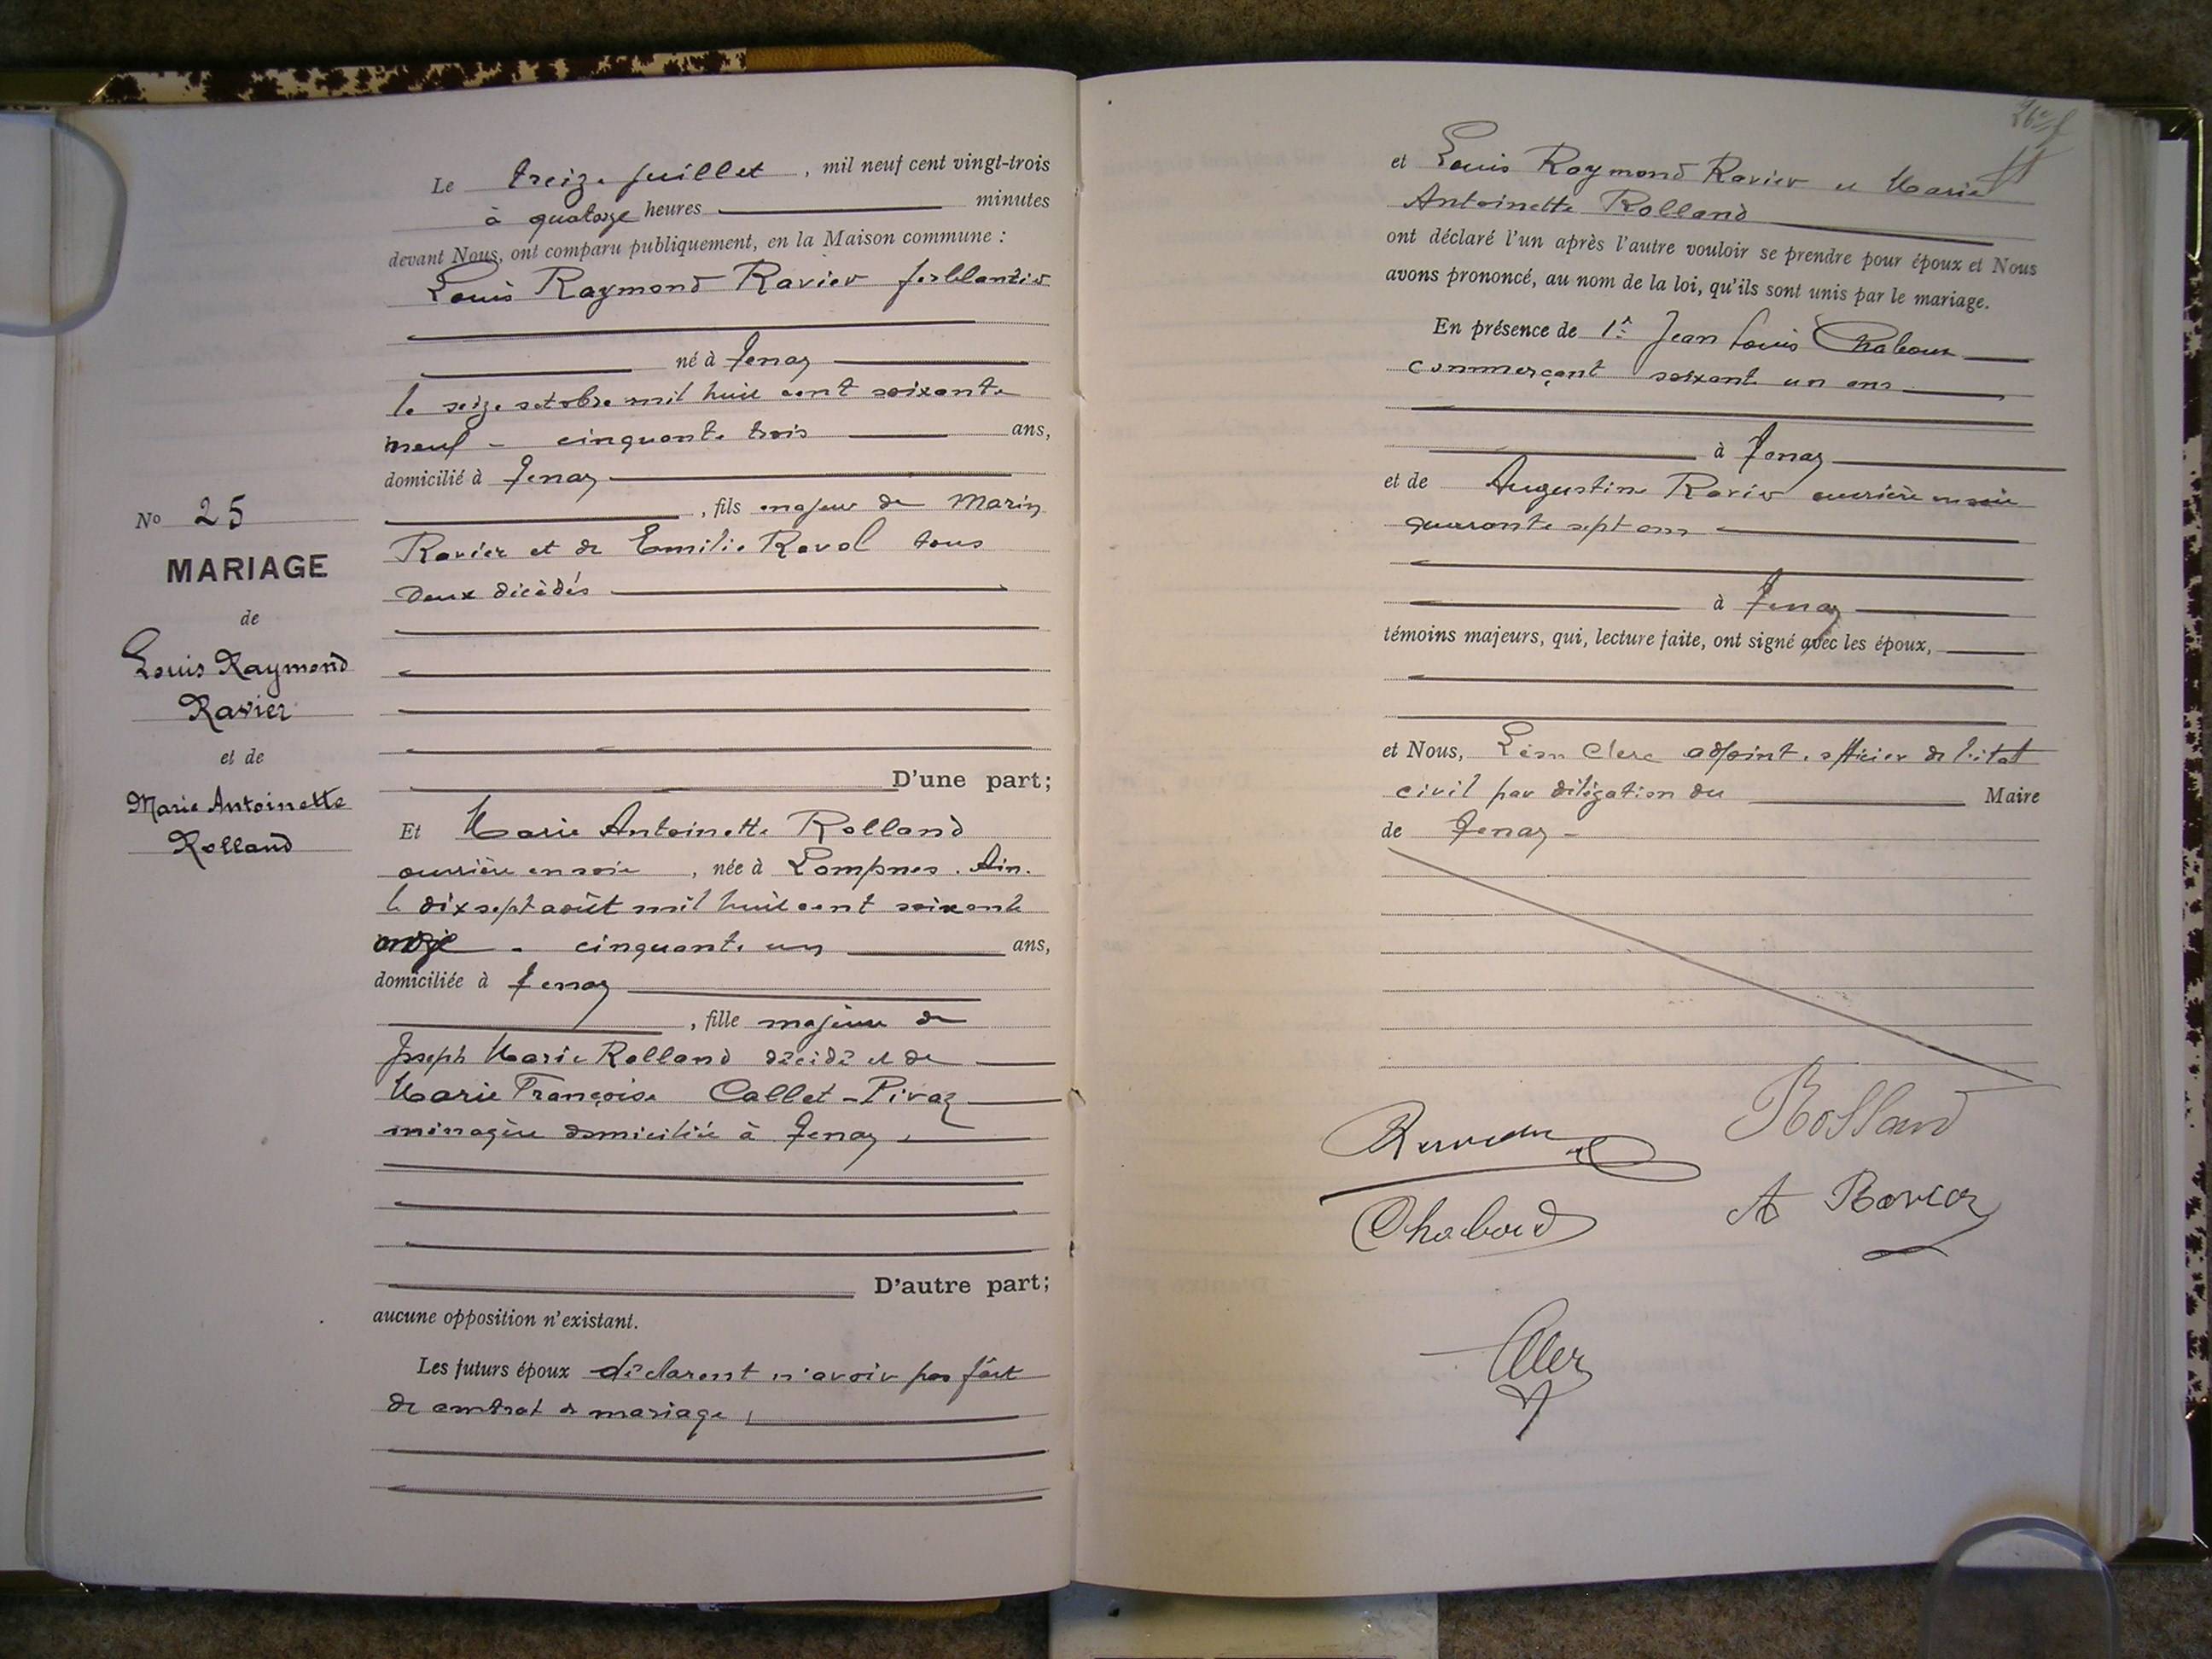 Le treize juillet, mil neuf cent vingt-trois
à quatorze heures minutes
devant Nous, ont comparu publiquement, en la Maison commune :
Louis Raymond Ravier ferblantier
né à Tenay
le seize octobre mil huit cent soixante
neuf - cinquante trois ans,
domicilié à Tenay
, fils majeur de Marin
Ravier et de Emilie Ravol tous
deux décédés
No 25
MARIAGE
de
Louis Raymond
Ravier
et de
Marie Antoinette
Rolland
D'une part;
Et Marie Antoinette Rolland
ouvrière en soie, née à Lompnes. Ain.
le dix sept août mil huit cent soixante
onze - cinquante un ans,
domiciliée à Tenay
, fille majeure de
Joseph Marie Rolland décédé et de
Marie Françoise Callet-Pivaz
ménagère domiciliée à Tenay,
D'autre part;
aucune opposition n'existant.
Les futurs époux déclarent n'avoir pas fait
de contrat de mariage,
et Louis Raymond Ravier et Marie
Antoinette Rolland
ont déclaré l'un après l'autre vouloir se prendre pour époux et Nous
avons prononcé, au nom de la loi, qu'ils sont unis par le mariage.
En présence de 1° Jean Louis
commerçant soixante un ans
à Tenay
et de Augustine Ravier ouvrière en soie
quarante sept ans
à Tenay
témoins majeurs, qui, lecture faite, ont signé avec les époux,
et Nous, Léon Clerc adjoint, officier de l'état
civil par délégation du Maire
de Tenay -
Rolland
Chabord A Ravier